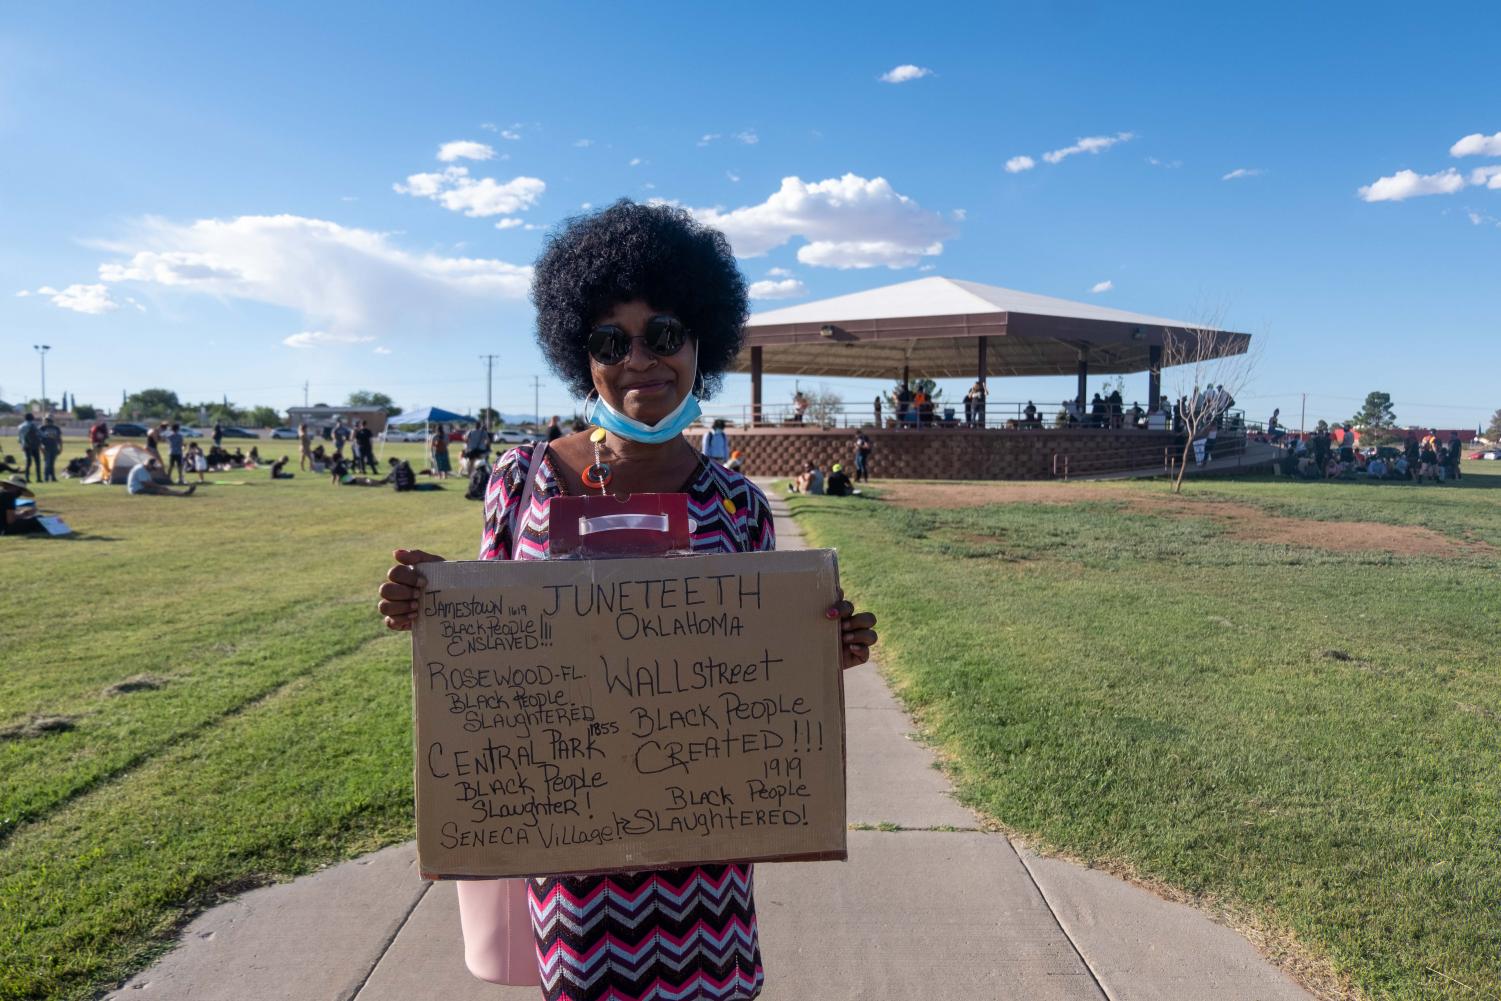 JUNETEETH
OKLAHOMA
JAMESTOWN 1619
BLACK PEOPLE
ENSLAVED!!!
ROSEWOOD-FL.
BLACK PEOPLE
SLAUGHTERED
CENTRAL PARK 1855
BLACK PEOPLE
SLAUGHTER!
SENECA VILLAGE!
WALLSTREET
BLACK PEOPLE
CREATED!!!
1919
BLACK PEOPLE
SLAUGHTERED!